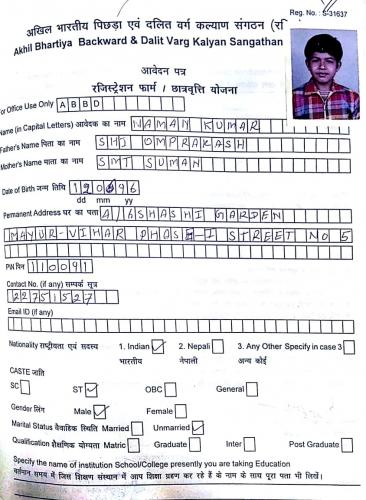 Reg. No. : S-31637
अखिल भारतीय पिछड़ा एवं दलित वर्ग कल्याण संगठन (रजि
Akhil Bhartiya Backward & Dalit Varg Kalyan Sangathan
आवेदन पत्र
रजिस्ट्रेशन फार्म / छात्रवृत्ति योजना
For Office Use Only ABBD
Name (in Capital Letters) आवेदक का नाम NAMAN KUMAR
Father's Name पिता का नाम SHI OMPRAKASH
Mother's Name माता का नाम SMT SUMAN
Date of Birth जन्म तिथि 120696
dd mm yy
Permanent Address घर का पता A/6 SHASHI GARDEN
MAYUR-VIHAR PHASE-I STREET NO 5
PIN पिन 110091
Contact No. (if any) सम्पर्क सूत्र
22751527
Email ID (if any)
Nationality राष्ट्रीयता एवं सदस्य 1. Indian 2. Nepali 3. Any Other Specify in case 3
भारतीय नेपाली अन्य कोई
CASTE जाति
SC ST OBC General
Gender लिंग Male Female
Marital Status वैवाहिक स्थिति Married Unmarried
Qualification शैक्षणिक योग्यता Matric Graduate Inter Post Graduate
Specify the name of institution School/College presently you are taking Education
वर्तमान समय में जिस शिक्षण संस्थान में आप शिक्षा ग्रहण कर रहे हैं के नाम के साथ पूरा पता भी लिखें।